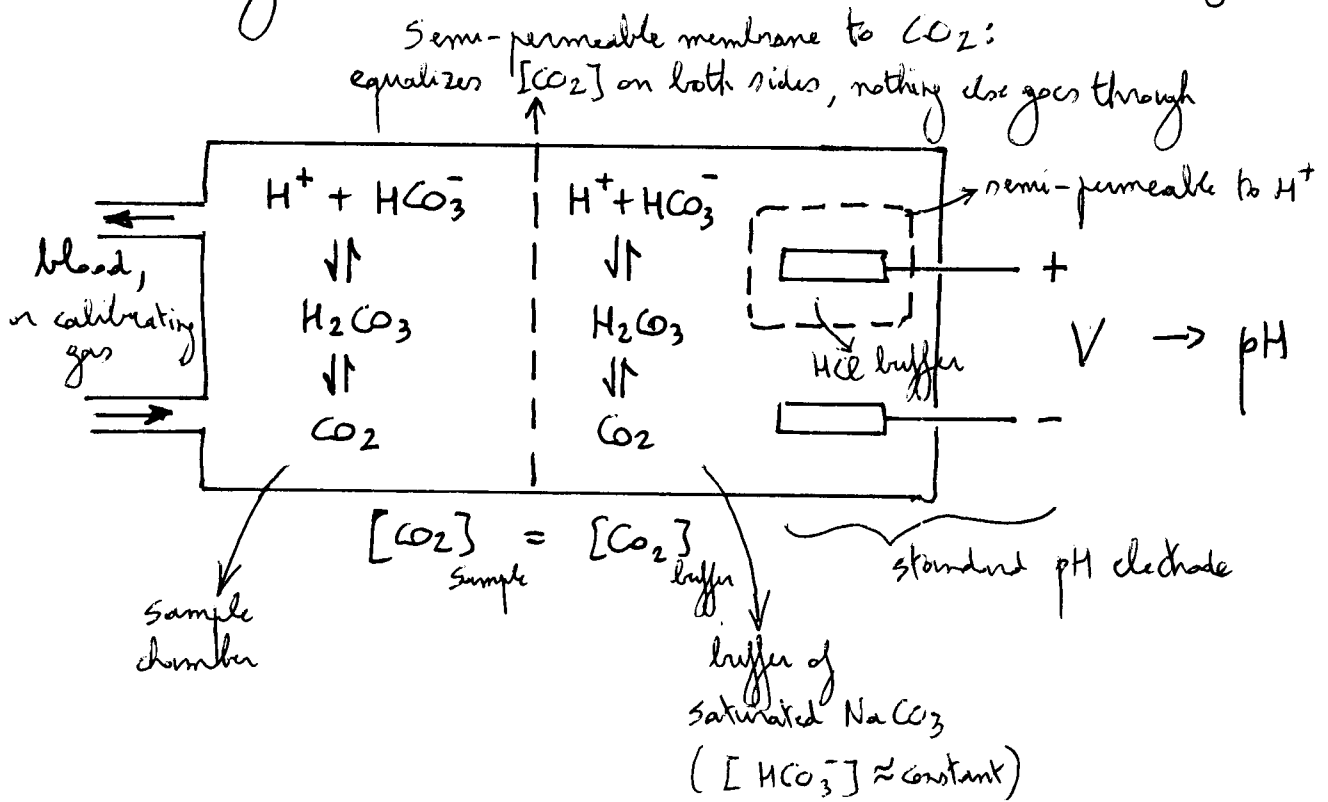 Semi-permeable membrane to CO2:
equalizes [CO2] on both sides, nothing else goes through
H⁺ + HCO3⁻
H⁺+HCO3⁻
semi-permeable to H⁺
blood,
or calibrating
gas
⇌
⇌
+
H2CO3
H2CO3
HCl buffer
V → pH
⇌
⇌
CO2
CO2
-
[CO2]sample = [CO2]buffer
standard pH electrode
sample
chamber
buffer of
saturated NaCO3
([HCO3⁻] ≈ constant)